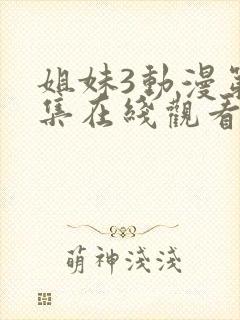 姐妹3動漫第
集在綫觀看
萌神淺淺